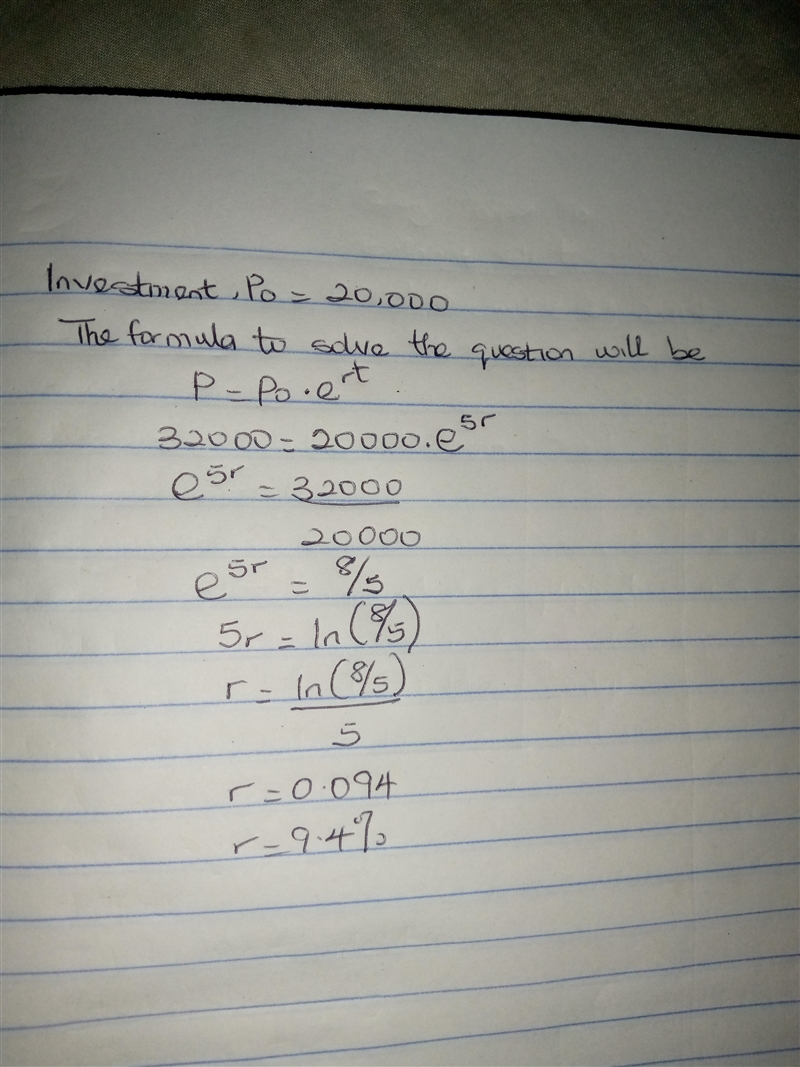 Investment, Po = 20,000
The formula to solve the question will be
P = Po · e^rt
32000 = 20000 . e^5r
e^5r = 32000
20000
e^5r = 8/5
5r = ln(8/5)
r = ln(8/5)
5
r = 0.094
r = 9.4%